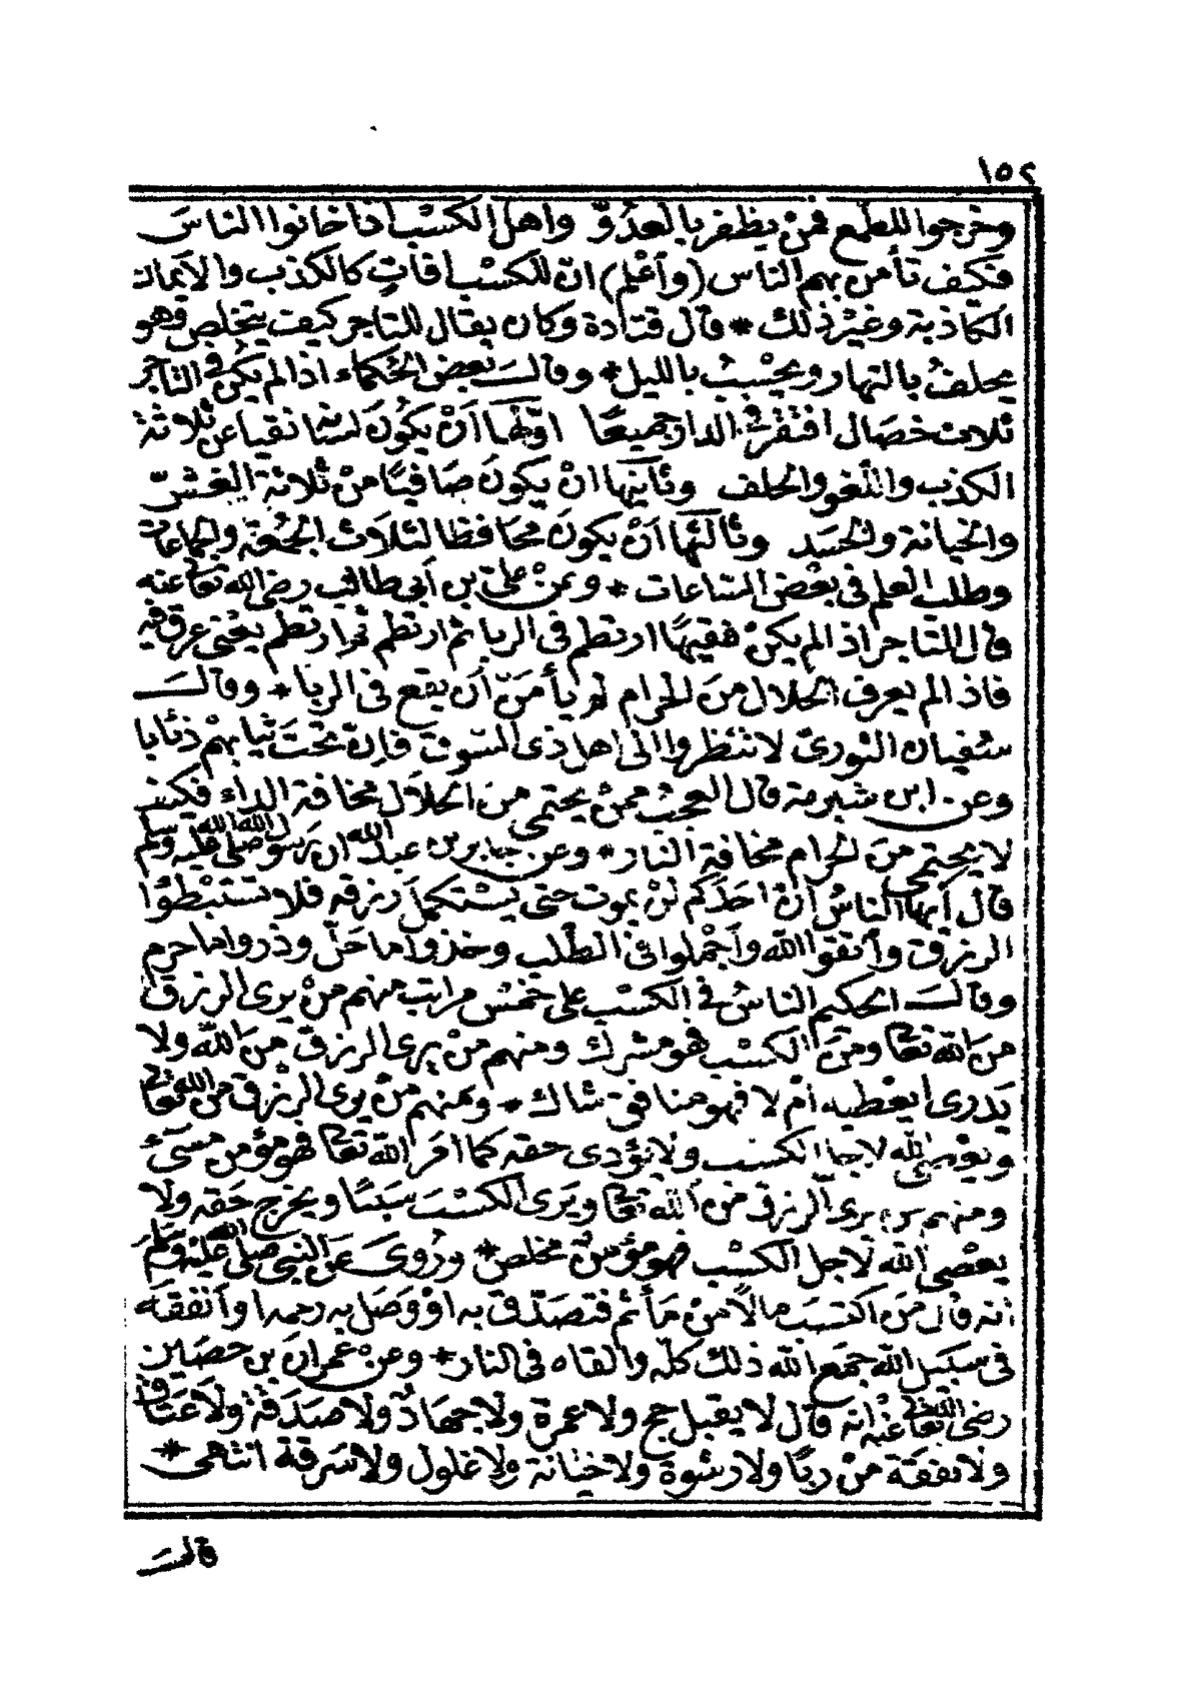 ١٥٢
وخرجوا للطمع فمنْ يظفر بالعدُوِّ واهل الكسْب اذا خانوا الناسَ
فكيف تأمن بهم الناس (واَعْلم) انّ للكسْب اٰفاتٍ كالكذب والايمان
الكاذبة وغيْر ذلك * قال قتادة وكان يقال للتاجر كيف يتخلص وهو
يحلفُ بالنهار ويحْسِبُ بالليل * وقالـــ بعض الحُكماء اذا لم يكُن فى التاجر
ثلاث خصال افتقر فى الدارجميعًا اوّلها اَنْ يكُونَ لسانه نقيا عن ثلاثة
الكذب واللّغو والحلف وثانيها انْ يكونَ صَافيًا منْ ثلاثة الغشّ
والخيانة والحسَد وثالثها اَنْ يكونَ محافظا لثلاث الجمُعة والجماعات
وطلب العلم فى بعْض الساعات * وعنْ علىّ بن اَبى طالب رضى الله تعالى عنه
قال التاجر اذ الم يكنْ فقيهًا ارتطم فى الربا ثم ارتطم ثم ارتطم يعْنى غرق فيه
فاذ الم يعرف الحلال منَ الحرام لم يأمَنّ اَن يقع فى الربا * وقالـــ
سفيان الثورىّ لا تنظروا الى اهل ذى السّوق فاِنّ تحْتَ ثيابهمْ ذئابا
وعن ابن شبرمة قال العجبُ ممنْ يحتمى منَ الحلال مخافة الداء فكيف
لا يحتمى منَ الحرام مخافة النار * وعن جابر بن عبد الله ان رَسول الله صلى الله عليه وسلم
قال اَيها الناسُ اَنّ احَدَكم لنْ يموت حتى يسْتكملَ رزقه فلا تستبْطؤا
الرزق واَتقوا الله واَجْملوا فى الطّلب وخذوا ما حَلّ وذروا ما حرم
وقالـــ الحكيم الناسُ فى الكسْب على خمْس مراتب منهم منْ يرى الرزق
منَ الله تعالى ومنَ الكسْب فهو مشرك ومنهم منْ يرى الرزق منَ الله ولا
يَدرى ايعْطيه اَمْ لا فهو منافق شاك * ومنهم منْ يرى الرزق من الله تعالى
ويعْصى الله لاجل الكسْب ولا يؤدى حقه كما اَمرَ الله تعالى فهو مؤمن مسىء
ومنهم من يرى الرزق منَ الله تعالى ويَرى الكسْبَ سَببًا ويخرج حَقه ولا
يعْصى الله لاجل الكسْب فهو مؤمنٌ مخلص * ورُوىَ عَن النبى صلى الله عليْه وسَلم
انه قال منَ اكتسَب مالًا منْ مَأثم فتصدّق به اوْ وَصَل به رحمه او اَنفقه
فى سبيل الله جمَع الله ذلك كلّه والقاه فى النار * وعن عمرانَ بن حصَين
رضى الله تعالى عنْه انه قال لا يقبل حج ولا عمرة ولا جهادٌ ولا صَدَقةٌ ولا عتاق
ولا نفقة منْ ربًا ولا رشوة ولا خيانة ولا غلول ولا سَرقة انتهى *
قالـــ